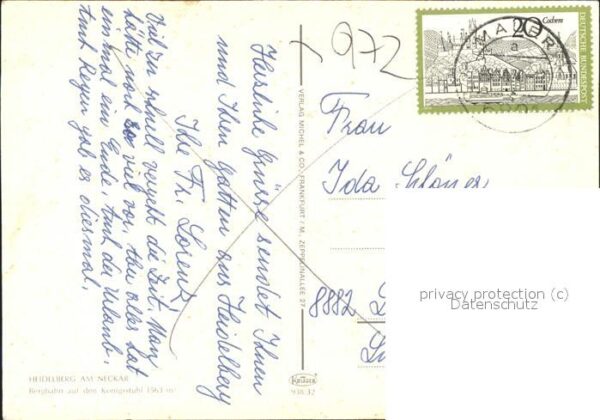 Herzliche Grüsse sendet Ihnen
und Ihren Gatten aus Heidelberg
Ihr Fr. Lorenz
Viel zu schnell vergeht die Zeit. Man
hätte noch so viel vor, aber alles hat
einmal ein Ende, auch der Urlaub.
Regen gab es diesmal.
HEIDELBERG AM NECKAR
Bergbahn auf den Königstuhl 1963 m
VERLAG MICHEL & CO., FRANKFURT / M., ZEPPELINALLEE 27
Krüger
938.32
972
Cochem
20
DEUTSCHE BUNDESPOST
a
Frau
Ida
8882
privacy protection (c)
Datenschutz